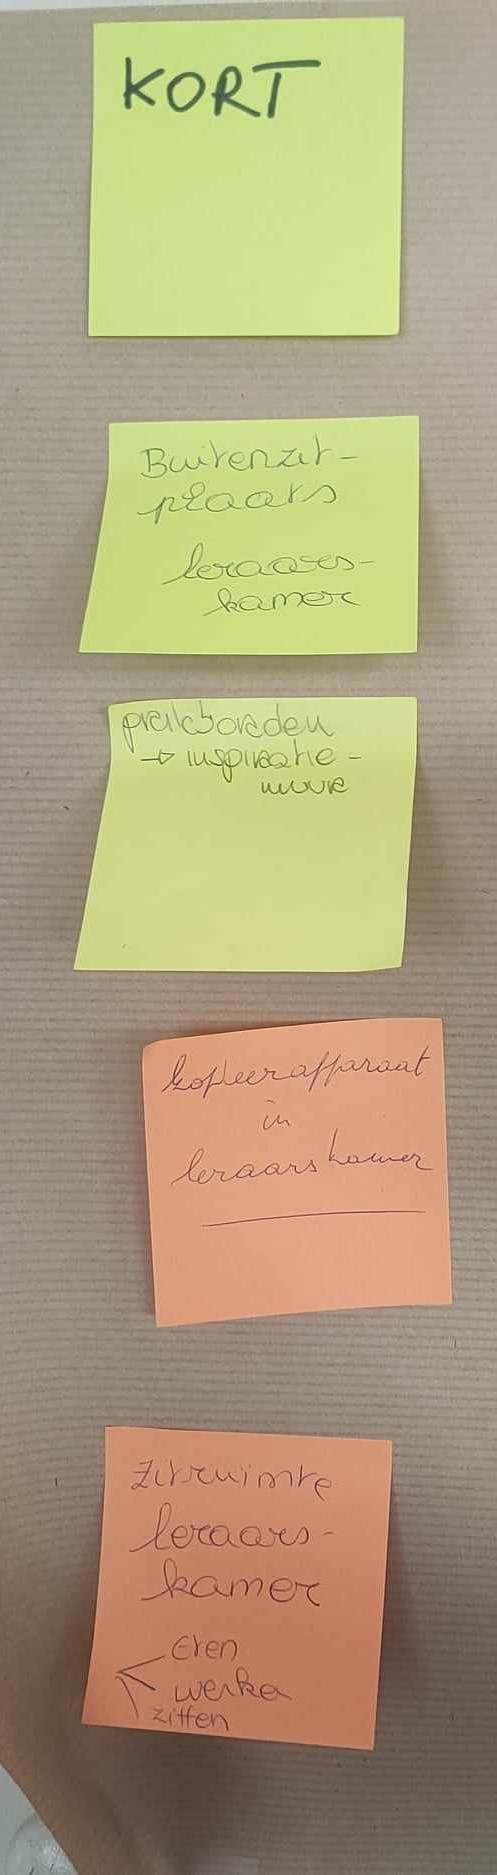 KORT
Buitenzit-
plaats
leraars-
kamer
prikborden
→ inspiratie-
muur
kopieerapparaat
in
leraarskamer
Zitruimte
leraars-
kamer
Eten
werken
zitten